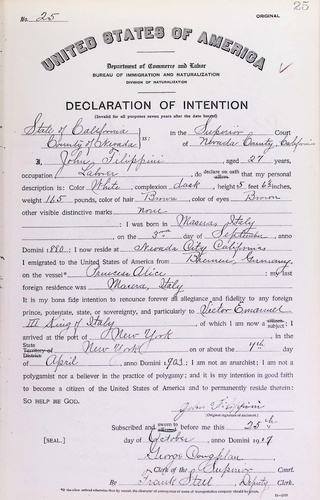 25
No. 25
ORIGINAL
UNITED STATES OF AMERICA
Department of Commerce and Labor
BUREAU OF IMMIGRATION AND NATURALIZATION
DIVISION OF NATURALIZATION
DECLARATION OF INTENTION
(Invalid for all purposes seven years after the date hereof)
State of California ss: in the Superior Court
County of Nevada of Nevada County, California
I, John Filippini, aged 27 years,
occupation Laborer, do declare on oath that my personal
description is: Color White, complexion dark, height 5 feet 6 inches,
weight 165 pounds, color of hair Brown, color of eyes Brown
other visible distinctive marks none
I was born in Italy
on the day of September, anno
Domini 1880; I now reside at Nevada City California
I emigrated to the United States of America from Germany
on the vessel* Alice; my last
foreign residence was Italy
It is my bona fide intention to renounce forever all allegiance and fidelity to any foreign
prince, potentate, state, or sovereignty, and particularly to Victor Emanuel
III King of Italy, of which I am now a subject; I
arrived at the port of New York, in the
State Territory or District of New York on or about the day
of April, anno Domini 1903; I am not an anarchist; I am not a
polygamist nor a believer in the practice of polygamy; and it is my intention in good faith
to become a citizen of the United States of America and to permanently reside therein:
SO HELP ME GOD.
John Filippini
(Original signature of declarant.)
Subscribed and sworn to before me this 25th
[SEAL.] day of October, anno Domini 1909
George
Clerk of the Superior Court.
By Frank Steel, Deputy Clerk.